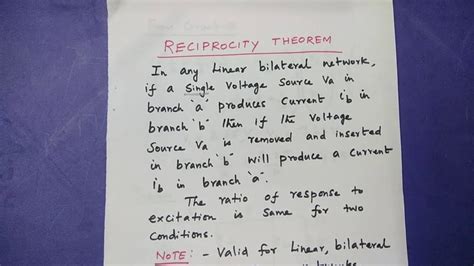 RECIPROCITY THEOREM
In any Linear bilateral network,
if a Single Voltage Source Va in
branch 'a' produces Current ib in
branch 'b' then if the Voltage
Source Va is removed and inserted
in branch 'b' will produce a Current
ib in branch 'a'.
The ratio of response to
excitation is Same for two
Conditions.
NOTE: - Valid for Linear, bilateral